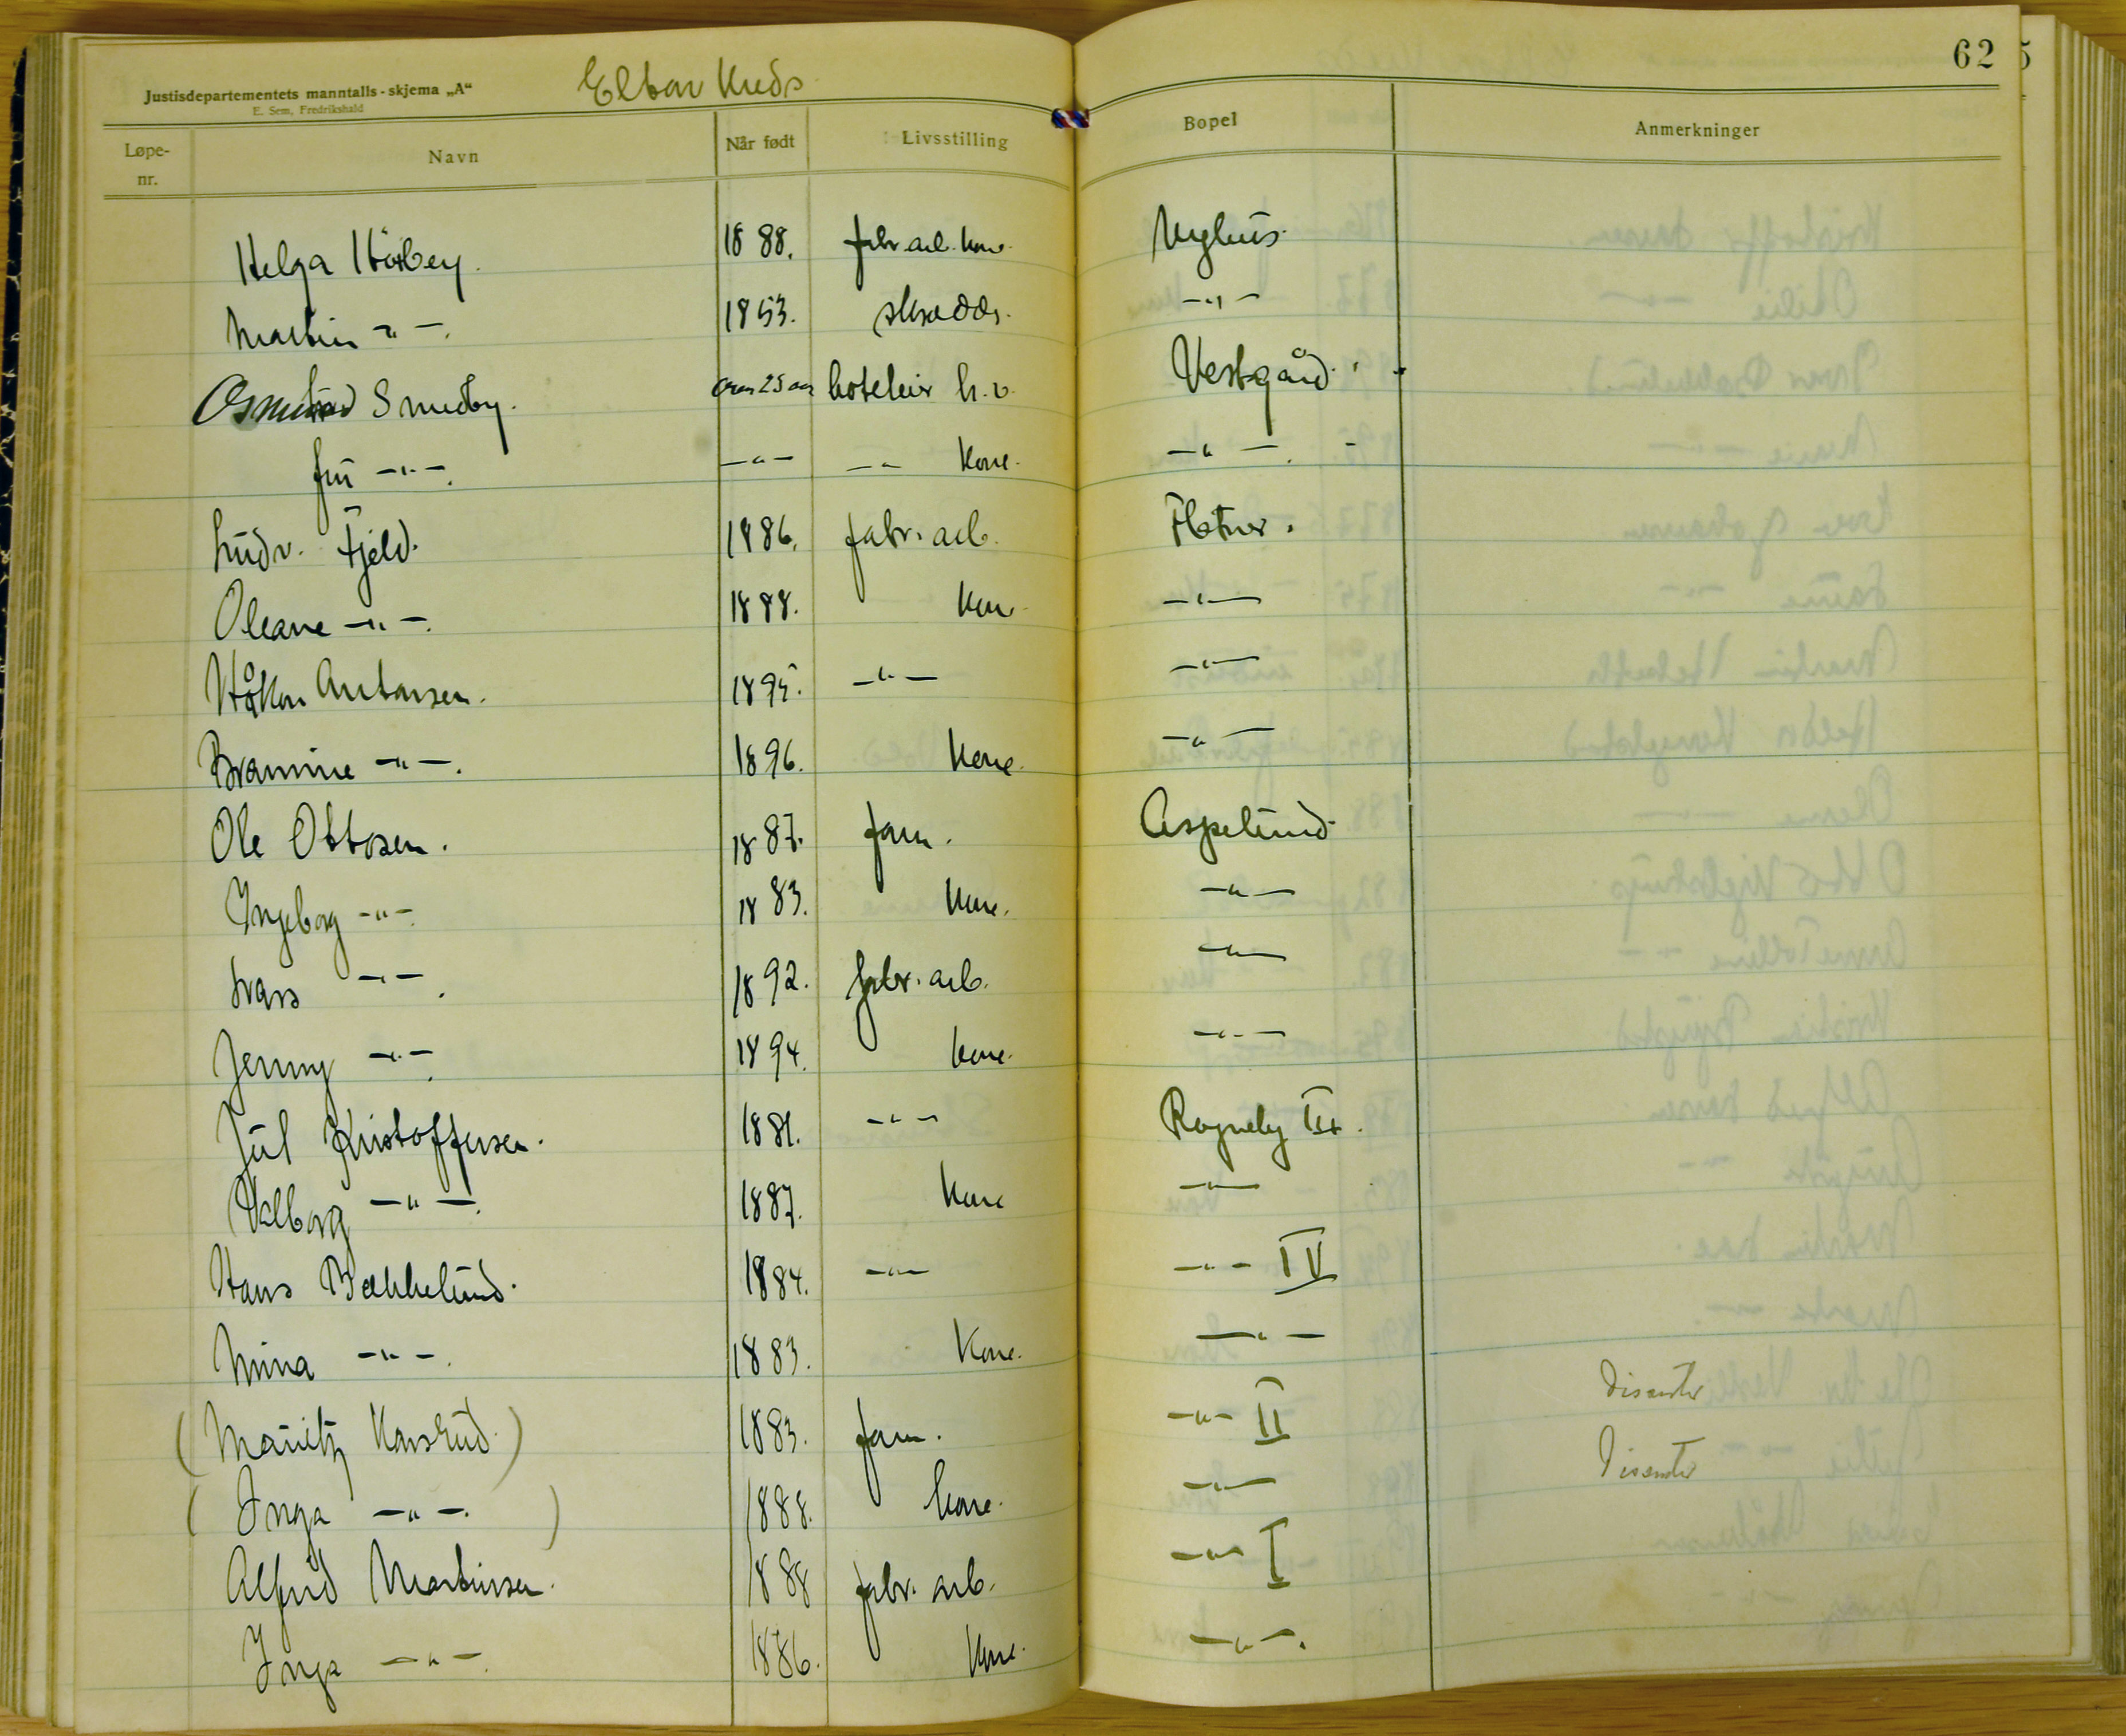 62
Justisdepartementets manntalls-skjema „A“ Elton Kreds
E. Sem, Fredrikshald
Løpe-nr. Navn Når født Livsstilling Bopel Anmerkninger
Helga Hörbey. 1888. fabr.arb. kone Nyhus.
Martin -"-. 1853. skrædder. -"-
Osmund Smedby. over 25 aar hoteleier h.v. Vestgård.
fru -"-. -"- -"- kone. -"-.
Ludv. Fjeld. 1886. fabr.arb. Flatner.
Oleane -"-. 1888. kone -"-
Håkon Antonsen. 1895. -"- -"-
Bramine -"-. 1896. kone. -"-
Ole Ottosen. 1887. farm. Aspelund.
Ingeborg -"-. 1883. kone. -"-
Lars -"-. 1892. fabr.arb. -"-
Jenny -"-. 1894. kone. -"-
Jul Kristoffersen. 1881. -"-
Valborg -"-. 1887. kone -"-
Hans Bækkelund. 1884. -"- -"- IV
Mina -"-. 1883. Kone. -"-
(Mauritz Karsrud.) 1883. farm. -"- II Disenter
(Inga -"-.) 1888. kone. -"- Disenter
Alfred Martinsen. 1888 fabr. arb. -"- I
Inga -"-. 1886. kone. -"-.